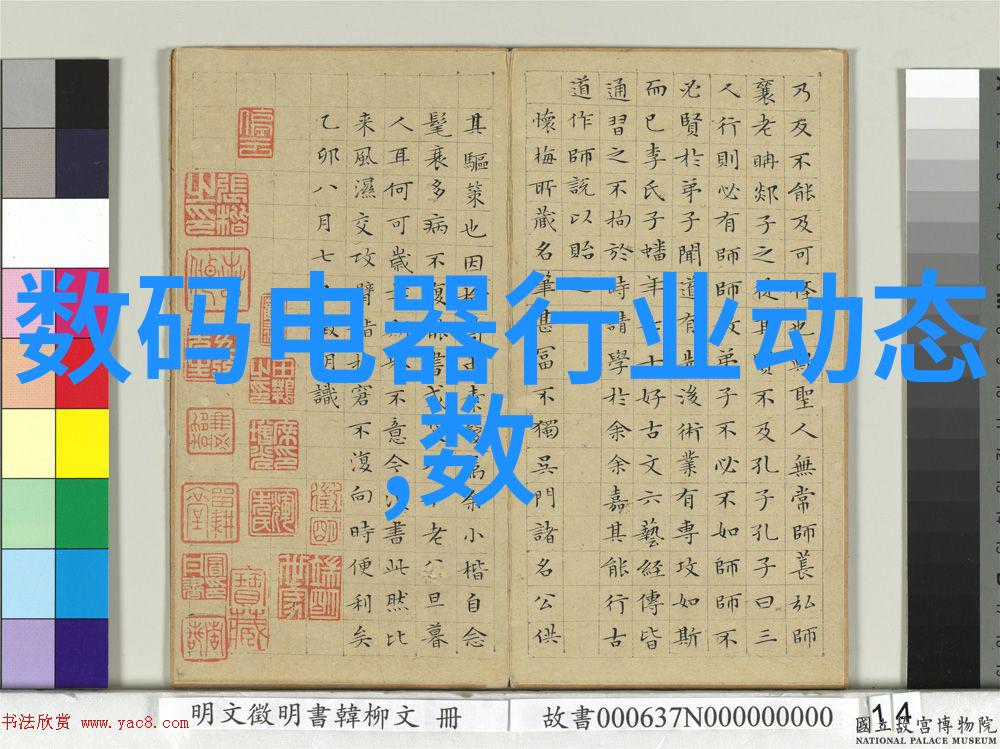 数码电器行业动态
,数
乃反不能及可怪也歟聖人無常師萇弘師
襄老聃郯子之徒其賢不及孔子孔子曰三
人行則必有師師故弟子不必不如師師不
必賢於弟子聞道有先後術業有專攻如斯
而已李氏子蟠年十七好古文六藝經傳皆
通習之不拘於時請學於余余嘉其能行古
道作師說以貽之
懷梅所藏名筆甚富不獨吳門諸名公供
其驅策也因余小楷自念
髦衰多病不復作書老旦暮
人耳何可歲不意今書此然比
来風濕交攻臂指拘窘不復向時便利矣
乙卯八月七徵明識
明文徵明書韓柳文 冊
故書000637N000000000
14
书法欣赏 www.yac8.com
國立故宮博物院
NATIONAL PALACE MUSEUM